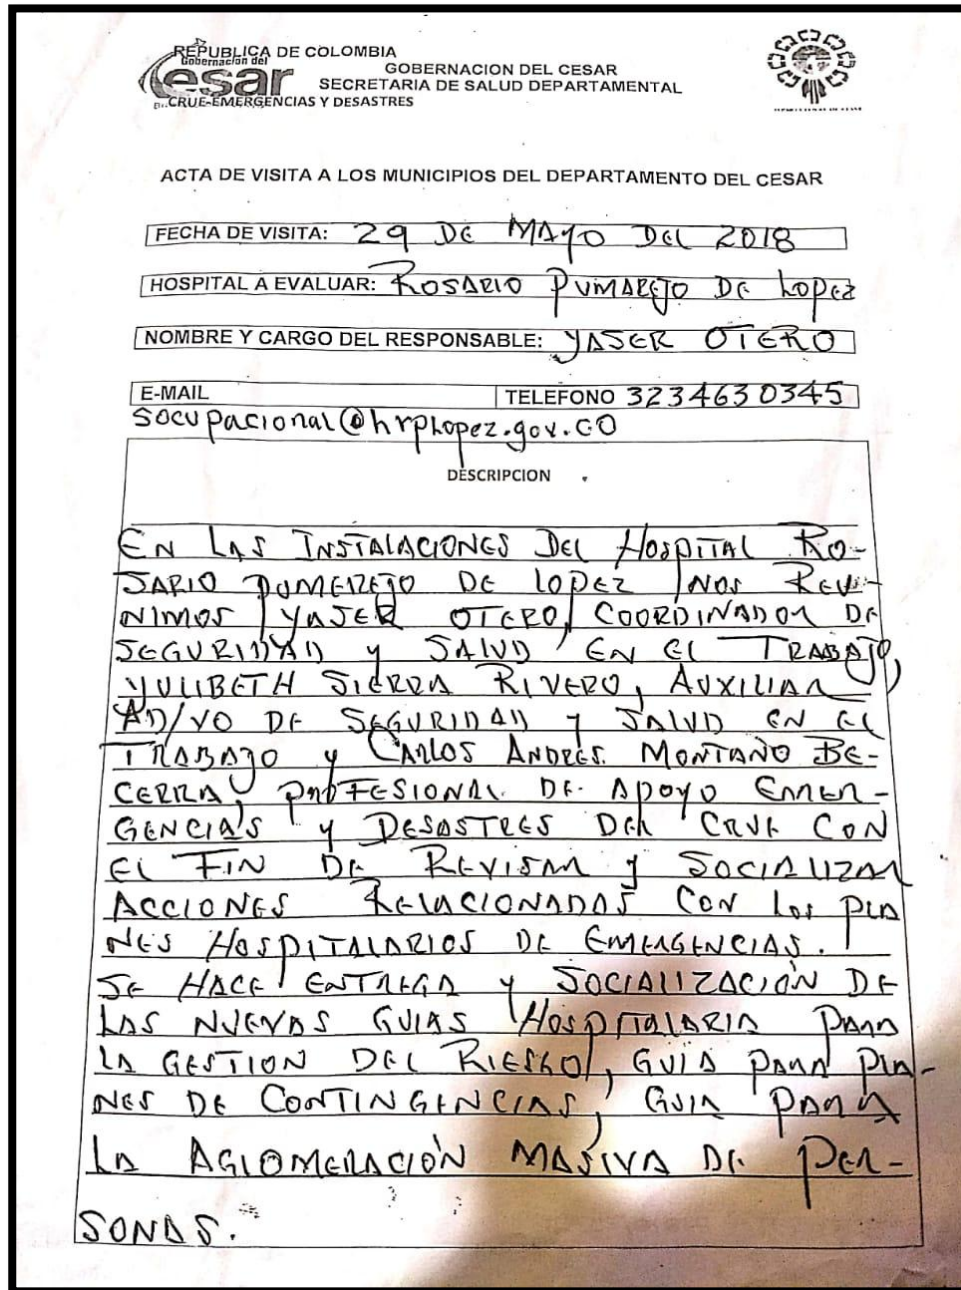 REPUBLICA DE COLOMBIA
Gobernacion del
cesar
GOBERNACION DEL CESAR
SECRETARIA DE SALUD DEPARTAMENTAL
CRUE-EMERGENCIAS Y DESASTRES
ACTA DE VISITA A LOS MUNICIPIOS DEL DEPARTAMENTO DEL CESAR
FECHA DE VISITA: 29 DE MAYO DEL 2018
HOSPITAL A EVALUAR: ROSARIO PUMAREJO DE LOPEZ
NOMBRE Y CARGO DEL RESPONSABLE: YASER OTERO
E-MAIL TELEFONO 3234630345
socupacional@hrplopez.gov.co
DESCRIPCION
EN LAS INSTALACIONES DEL HOSPITAL RO-
SARIO PUMEREJO DE LOPEZ NOS REU-
NIMOS YASER OTERO, COORDINADOR DE
SEGURIDAD y SALUD EN EL TRABAJO,
YULIBETH SIERRA RIVERO, AUXILIAR
AD/VO DE SEGURIDAD y SALUD EN EL
TRABAJO y CARLOS ANDRES MONTAÑO BE-
CERRA, PROFESIONAL DE APOYO EMER-
GENCIAS y DESASTRES DEL CRUE CON
EL FIN DE REVISAR y SOCIALIZAR
ACCIONES RELACIONADOS CON LOS PLA
NES HOSPITALARIOS DE EMERGENCIAS.
SE HACE ENTREGA y SOCIALIZACIÓN DE
LAS NUEVAS GUIAS HOSPITALARIA PARA
LA GESTION DEL RIESGO, GUIA PARA PLA-
NES DE CONTINGENCIAS, GUIA PARA
LA AGLOMERACIÓN MASIVA DE PER-
SONAS.